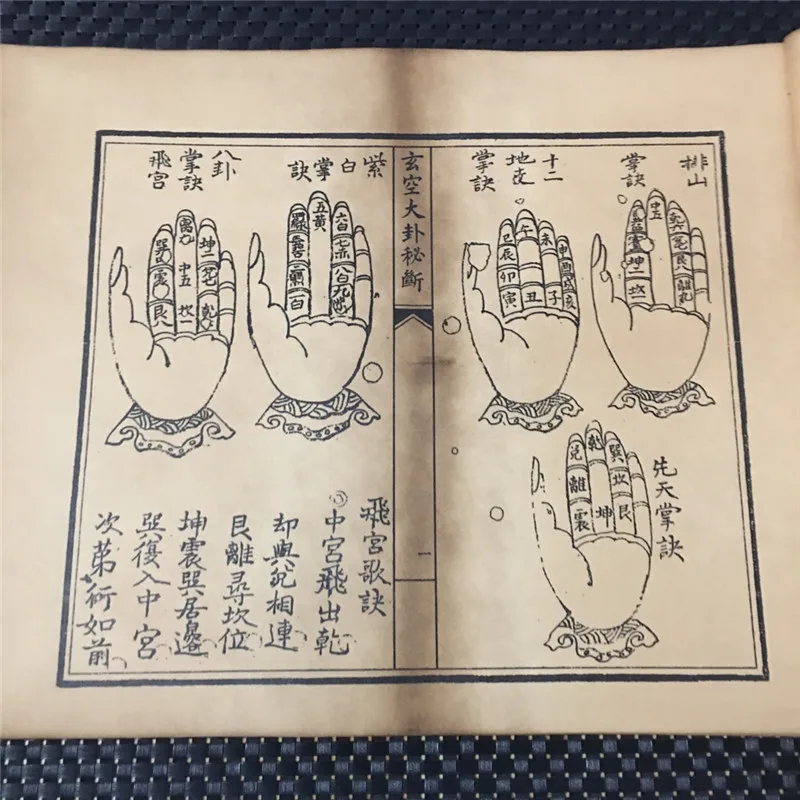 排山
掌訣
中五
乾六
兌七
艮八
離九
坤二
坎一
十二
地支
掌訣
午
丑
未
子
申
酉
戌
亥
巳
辰
卯
寅
先天掌訣
乾
坤
巽
坎
艮
兌
離
震
玄空大卦秘斷
一
紫白掌訣
五黃
六白
七赤
八白
九紫
一白
八卦
掌訣
飛宮
坤二
兌七
乾六
離九
中五
坎一
巽
震
艮八
飛宮歌訣
中宮飛出乾
却與兌相連
艮離尋坎位
坤震巽居邊
巽復入中宮
次第如前